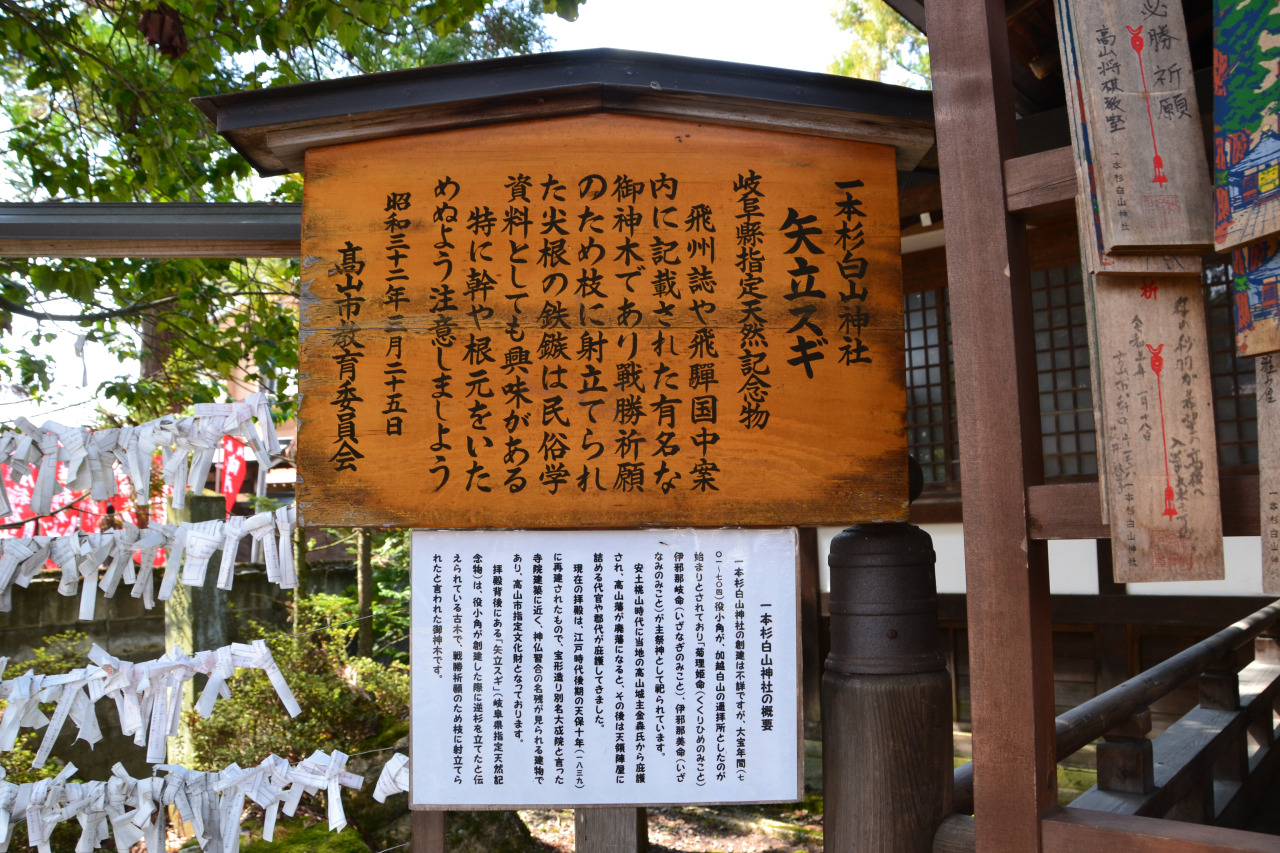 一本杉白山神社
矢立スギ
岐阜縣指定天然記念物
飛州誌や飛驒国中案
内に記載された有名な
御神木であり戦勝祈願
のため枝に射立てられ
た尖根の鉄鏃は民俗学
資料としても興味がある
特に幹や根元をいた
めぬよう注意しましよう
昭和三十二年三月二十五日
髙山市教育委員会
一本杉白山神社の概要
一本杉白山神社の創建は不詳ですが、大宝年間(七
〇一~七〇四)役小角が、加越白山の遥拝所としたのが
始まりとされており「菊理姫命(くくりひめのみこと)
伊邪那岐命(いざなぎのみこと)、伊邪那美命(いざ
なみのみこと)が主祭神として祀られています。
安土桃山時代に当地の高山城主金森氏から庇護
され、高山藩が廃藩になると、その後は天領陣屋に
詰める代官や郡代が庇護してきました。
現在の拝殿は、江戸時代後期の天保十年(一八三九)
に再建されたもので、宝形造り別名大成院と言った
寺院建築に近く、神仏習合の名残が見られる建物で
あり、高山市指定文化財となっております。
拝殿背後にある「矢立スギ」(岐阜県指定天然記
念物)は、役小角が創建した際に逆杉を立てたと伝
えられている古木で、戦勝祈願のため枝に射立てら
れたと言われた御神木です。
必勝祈願
高山将棋教室
一本杉白山神社
祈
一本杉白山神社